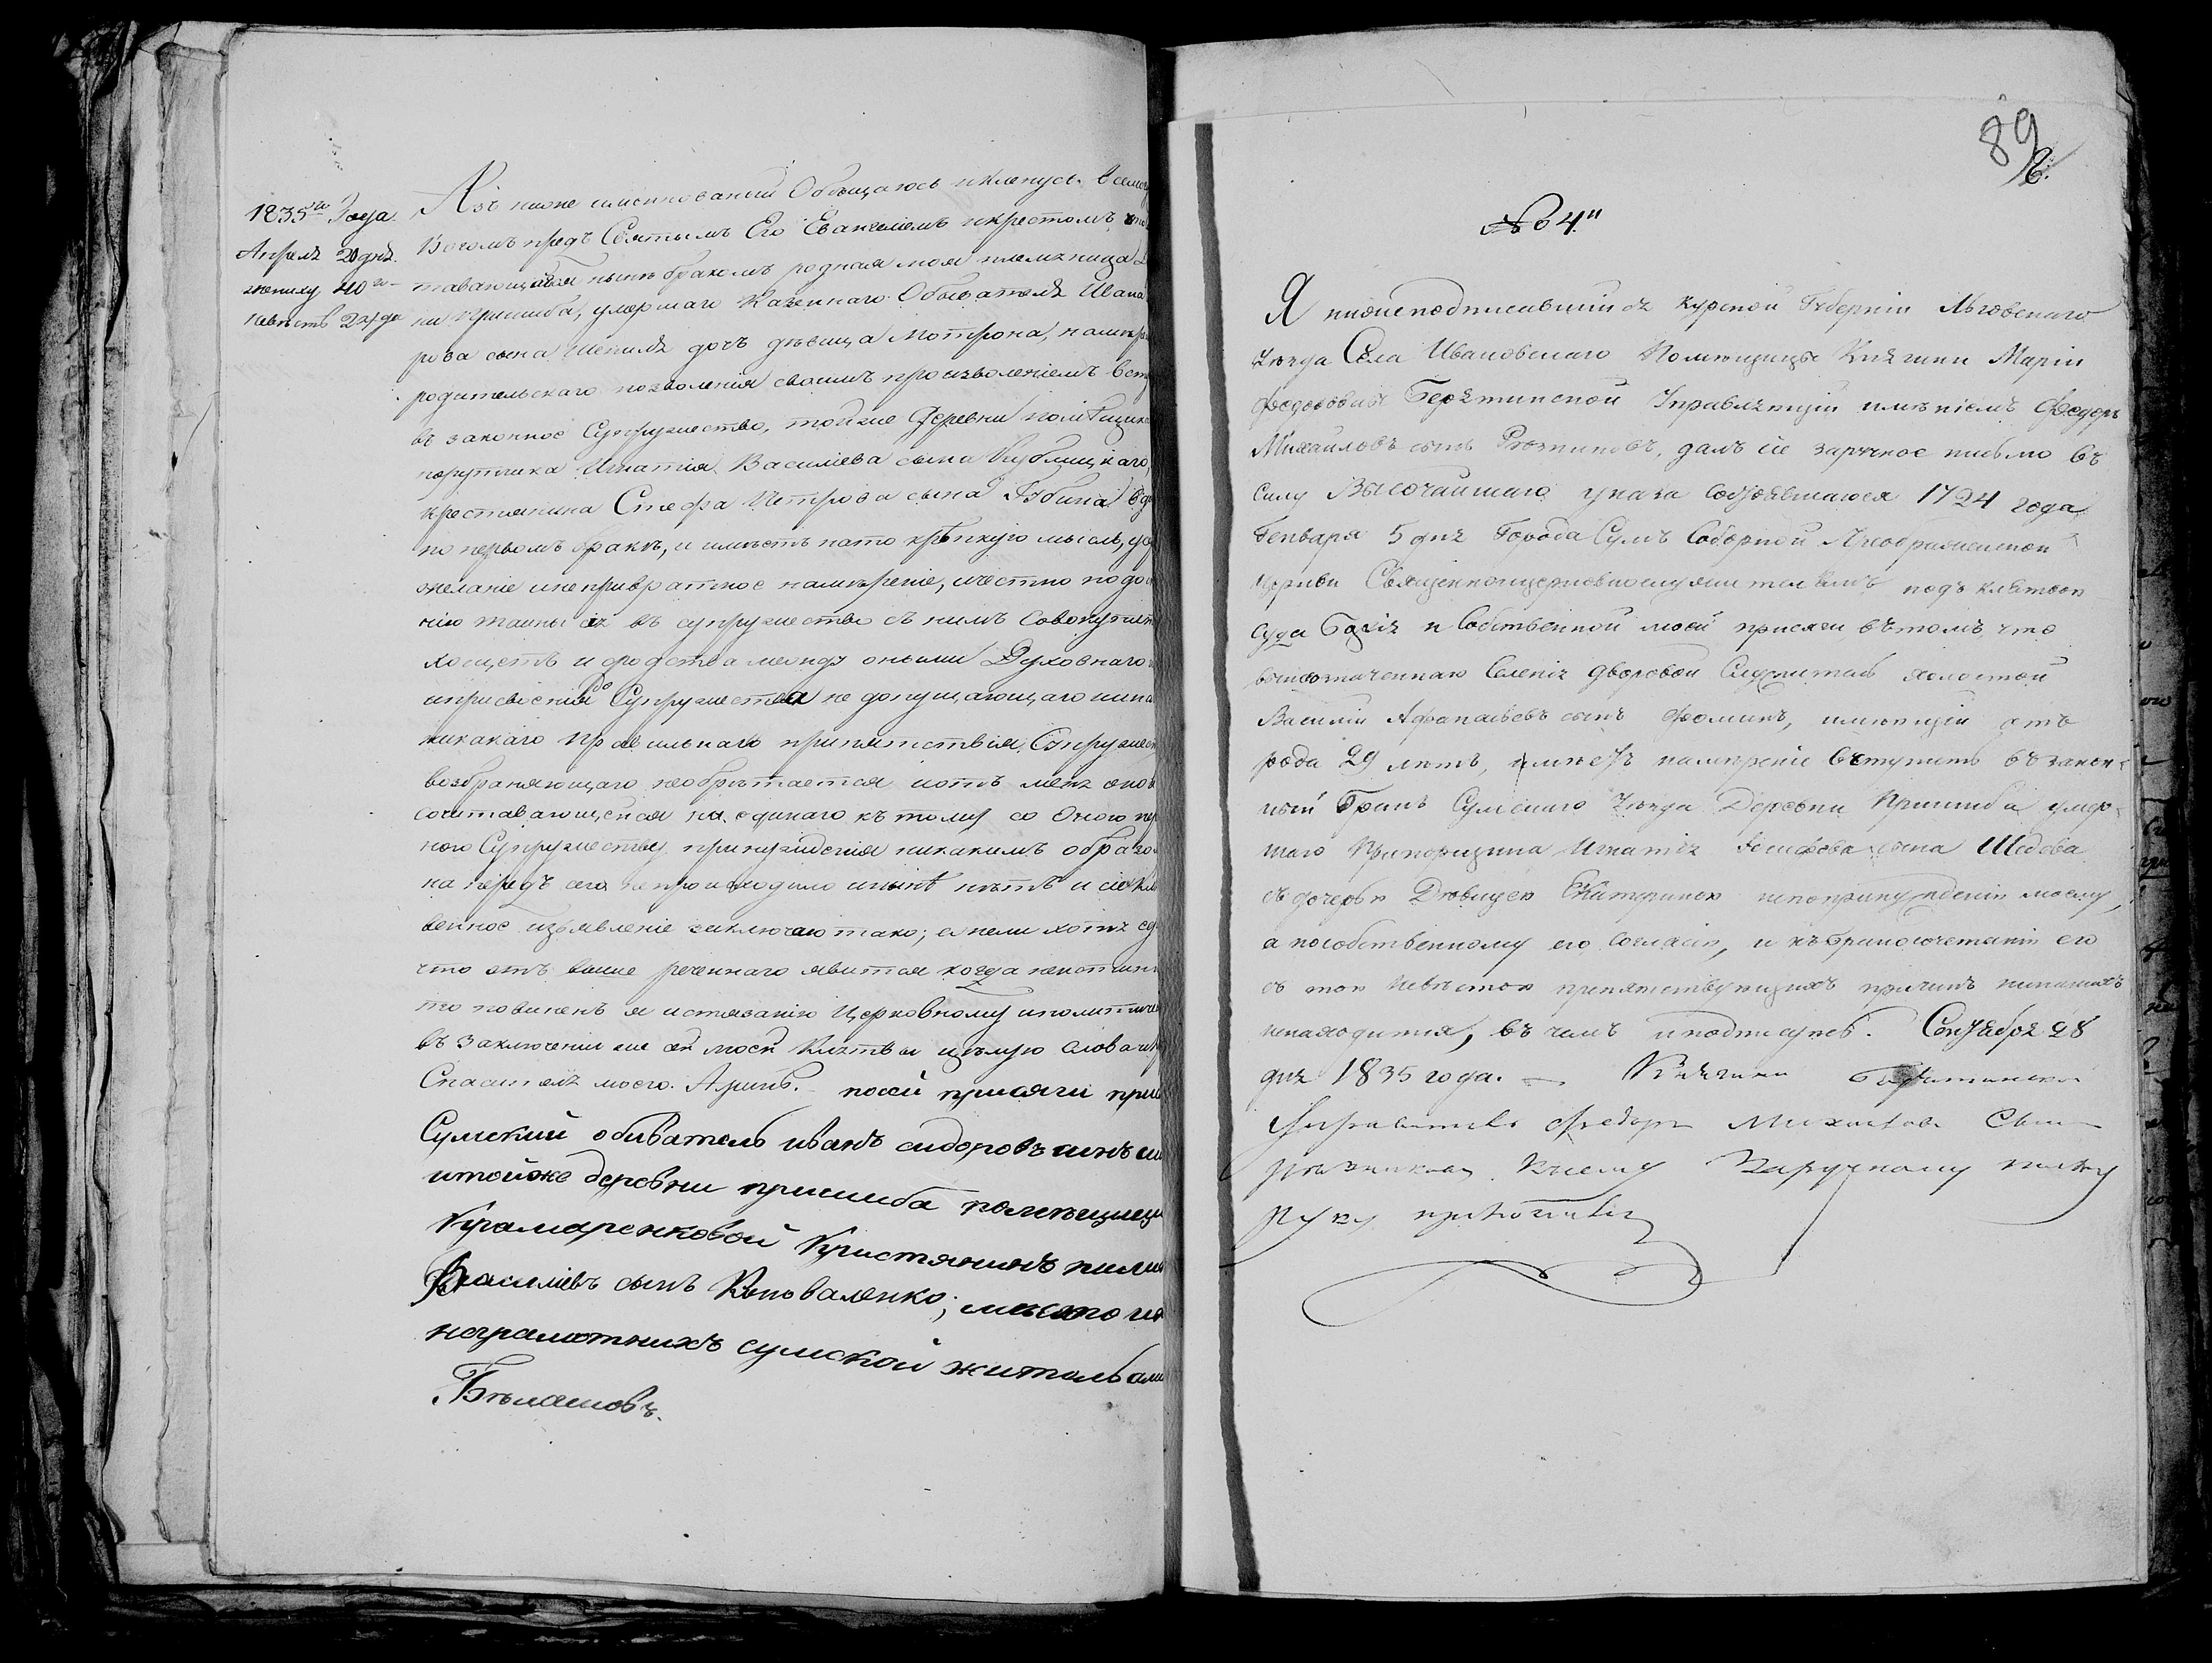 1835го Года
Апреля 20 дня.
жениху 40го
невесте 24 года
Азъ ниже имянованный Обещаюсь и кленусь всемо
Богомъ предъ Святымъ Его Евангелиемъ и крестомъ
тавающаяся ныне бракомъ родная моя племяница
ни Пришиба, умершаго Казеннаго Обывателя Ивана
рова сына Шепиля дочь девица Мотрона, намере
родительскаго позволения своимъ произволениемъ вст
въ законное Супружество, тойже Деревни помещика
порутчика Игнатия Василиева сына Кублицкаго,
крестьянина Стефа Петрова сына Губина
по первомъ браке, и имеетъ на то крепкую мысль, ус
желание и непривратное намерение, и честно по до
нию тайны сея въ супружество съ нимъ совокупит
хощетъ и сродства между оными Духовнаго
и присвоения до Супружества не допущающаго ни
никакаго правильнаго припятствия, Супружес
возбраняющаго не обретается и отъ мене оной
сочетавающейся ни единаго къ тому со Оною пе
ного Супружеству принуждения никакимъ образо
на предъ сего не происходило и ныне нетъ и сие кля
венное изъявление заключаю тако; ежели хотя ед
что отъ выше реченнаго явится когда неистин
то повиненъ я истязанию Церковному и политиче
въ заключении же сей моей Клятвы целую слова и кр
Спасителя моего. Аминь. - посей присяги при
Сумский обиватель иванъ сидоровъ синъ ши
итойже деревни пришиба помещици
Крамаренковой Кристянинъ пили
Василиевъ сынъ Коноваленко; место их
неграмотнихъ сумской житель али
Белашовъ.
89
6.
№ 4й
Я нижеподписавшийся Курской Губернии Льговскаго
Уезда Села Ивановскаго Помещицы Княгини Марии
Федоровны Барятинской Управляющий имениемъ Федоръ
Михайловъ сынъ Резниковъ, далъ сие заручное письмо въ
силу Высочайшаго указа состоявшагося 1724 года
Генваря 5 дня Города Сумъ Соборной Преображенской
Церкви Священноцерковнослужителямъ подъ клятвою
суда Божия и Собственной моей присяги въ томъ, что
вышеозначеннаго Селения дворовой Служитель холостой
Василий Афанасьевъ сынъ Фоминъ, имеющий отъ
рода 29 летъ, имеетъ намерение вступить въ закон-
ный бракъ Сумскаго Уезда Деревни Пришиба умер-
шаго Прапорщика Игнатия Иосифова сына Шедева
съ дочерью Девицею Екатериною не по принуждению моему,
а по собственному его согласию, и къ бракосочетанию его
съ тою невестою препятствующихъ причинъ никакихъ
не находится, въ чемъ и подпишусь. Сентября 28
дня 1835 года. — Княгини Барятинской
Управитель Федоръ Михайловъ Сынъ
резниковъ Ксему Заручному письму
руку приложилъ